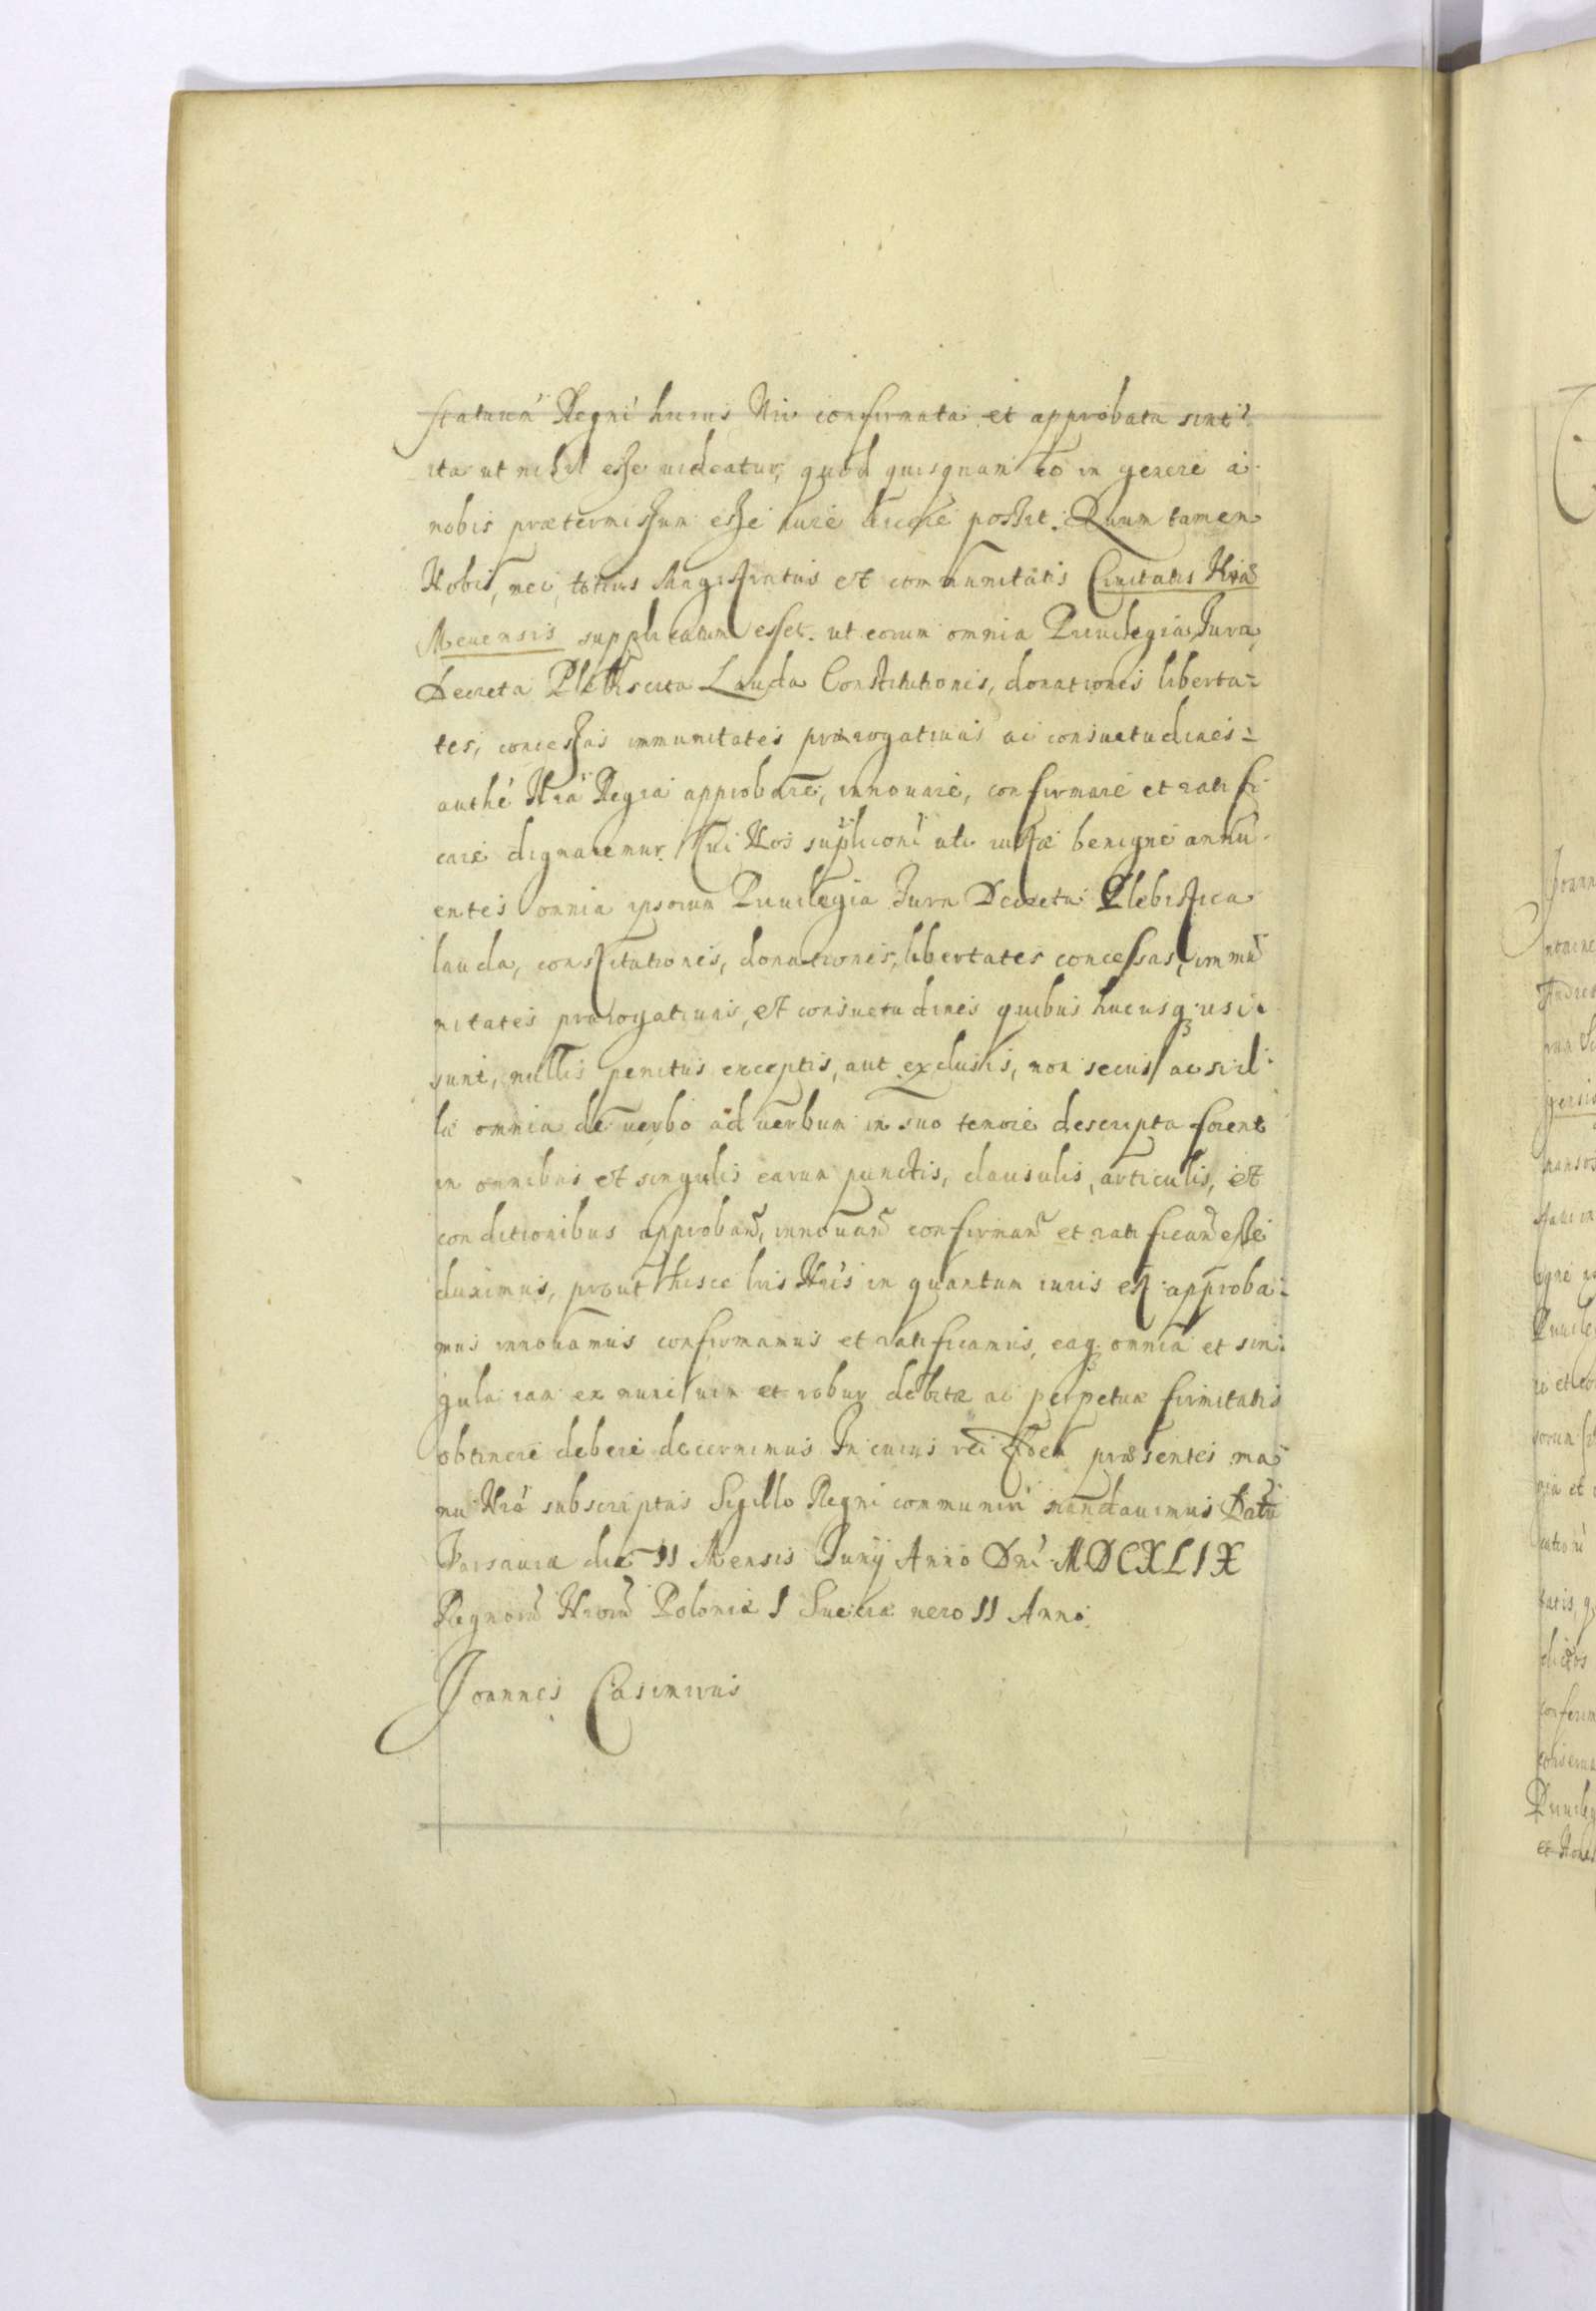 statuum Regni huius Nri confirmata et approbata sint
ita ut nihil esse uideatur, quod quisquam eo in genere a
nobis prætermissum esse iure dicere possit. Quum tamen
Nobis, nei, totius Magistratus et communitatis Ciuitatis Nræ
Meuensis supplicatum esset. ut eorum omnia Priuilegia, Jura,
Decreta Plebiscita Lauda Constitutiones, donationes liberta-
tes, concessas immunitates prærogatiuas ac consuetudines
authe Nra Regia approbare, innouare, confirmare et ratifi
care dignaremur. Cui Nos supliconi uti iustæ benigne annu
entes omnia ipsorum Priuilegia Jura Decreta Plebistica
lauda, constitutiones, donationes, libertates concessas, immu
nitates prærogatiuas, et consuetudines quibus hucusq usi
sunt, nullis penitus exceptis, aut exclusis, non secus ac si il
la omnia de uerbo ad uerbum in suo tenore descripta forent
in omnibus et singulis earum punctis, clausulis, articulis, et
conditionibus approban, innouan confirman et ratifican esse
duximus, prout hisce lris Nris in quantum iuris est approba-
mus innouamus confirmamus et ratificamus, eaq omnia et sin-
gula iam ex nunc uim et robur debitæ ac perpetuæ firmitatis
obtinere debere decernimus In cuius rei fidem præsentes ma
nu Nra subscriptas Sigillo Regni communiri mandauimus Datu
Varsauiæ die 11 Mensis Junij Anno Dni MDCXLIX
Regnoru Nroru Poloniæ I Sueciæ uero II Anno.
Joannes Casimirus